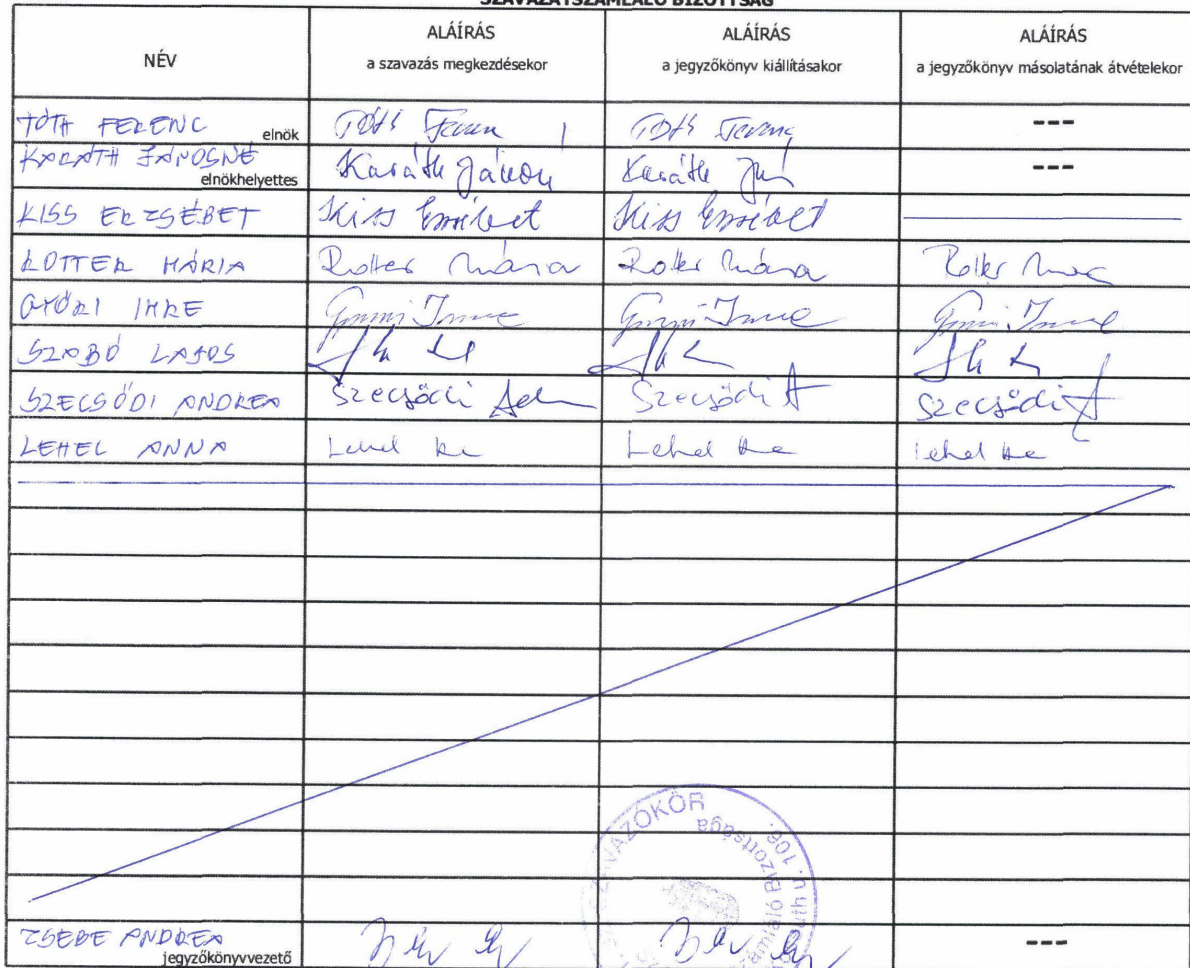 SZAVAZATSZÁMLÁLÓ BIZOTTSÁG
NÉV
ALÁÍRÁS
a szavazás megkezdésekor
ALÁÍRÁS
a jegyzőkönyv kiállításakor
ALÁÍRÁS
a jegyzőkönyv másolatának átvételekor
TÓTH FERENC elnök Tóth Ferenc Tóth Ferenc ---
KARÁTH JÁNOSNÉ
elnökhelyettes Karáth Karáth ---
KISS ERZSÉBET Kiss Erzsébet Kiss Erzsébet
ROTTER MÁRIA Rotter Mária Rotter Mária Rotter
GYŐRI IMRE Győri Imre Győri Imre Győri Imre
SZABÓ LAJOS
SZECSŐDI ANDREA Szecsődi Szecsődi A Szecsődi A
LEHEL ANNA Lehel Lehel Lehel
SZAVAZÓKÖR
Bizottsága
u. 106.
ZSEBE ANDREA
jegyzőkönyvvezető ---